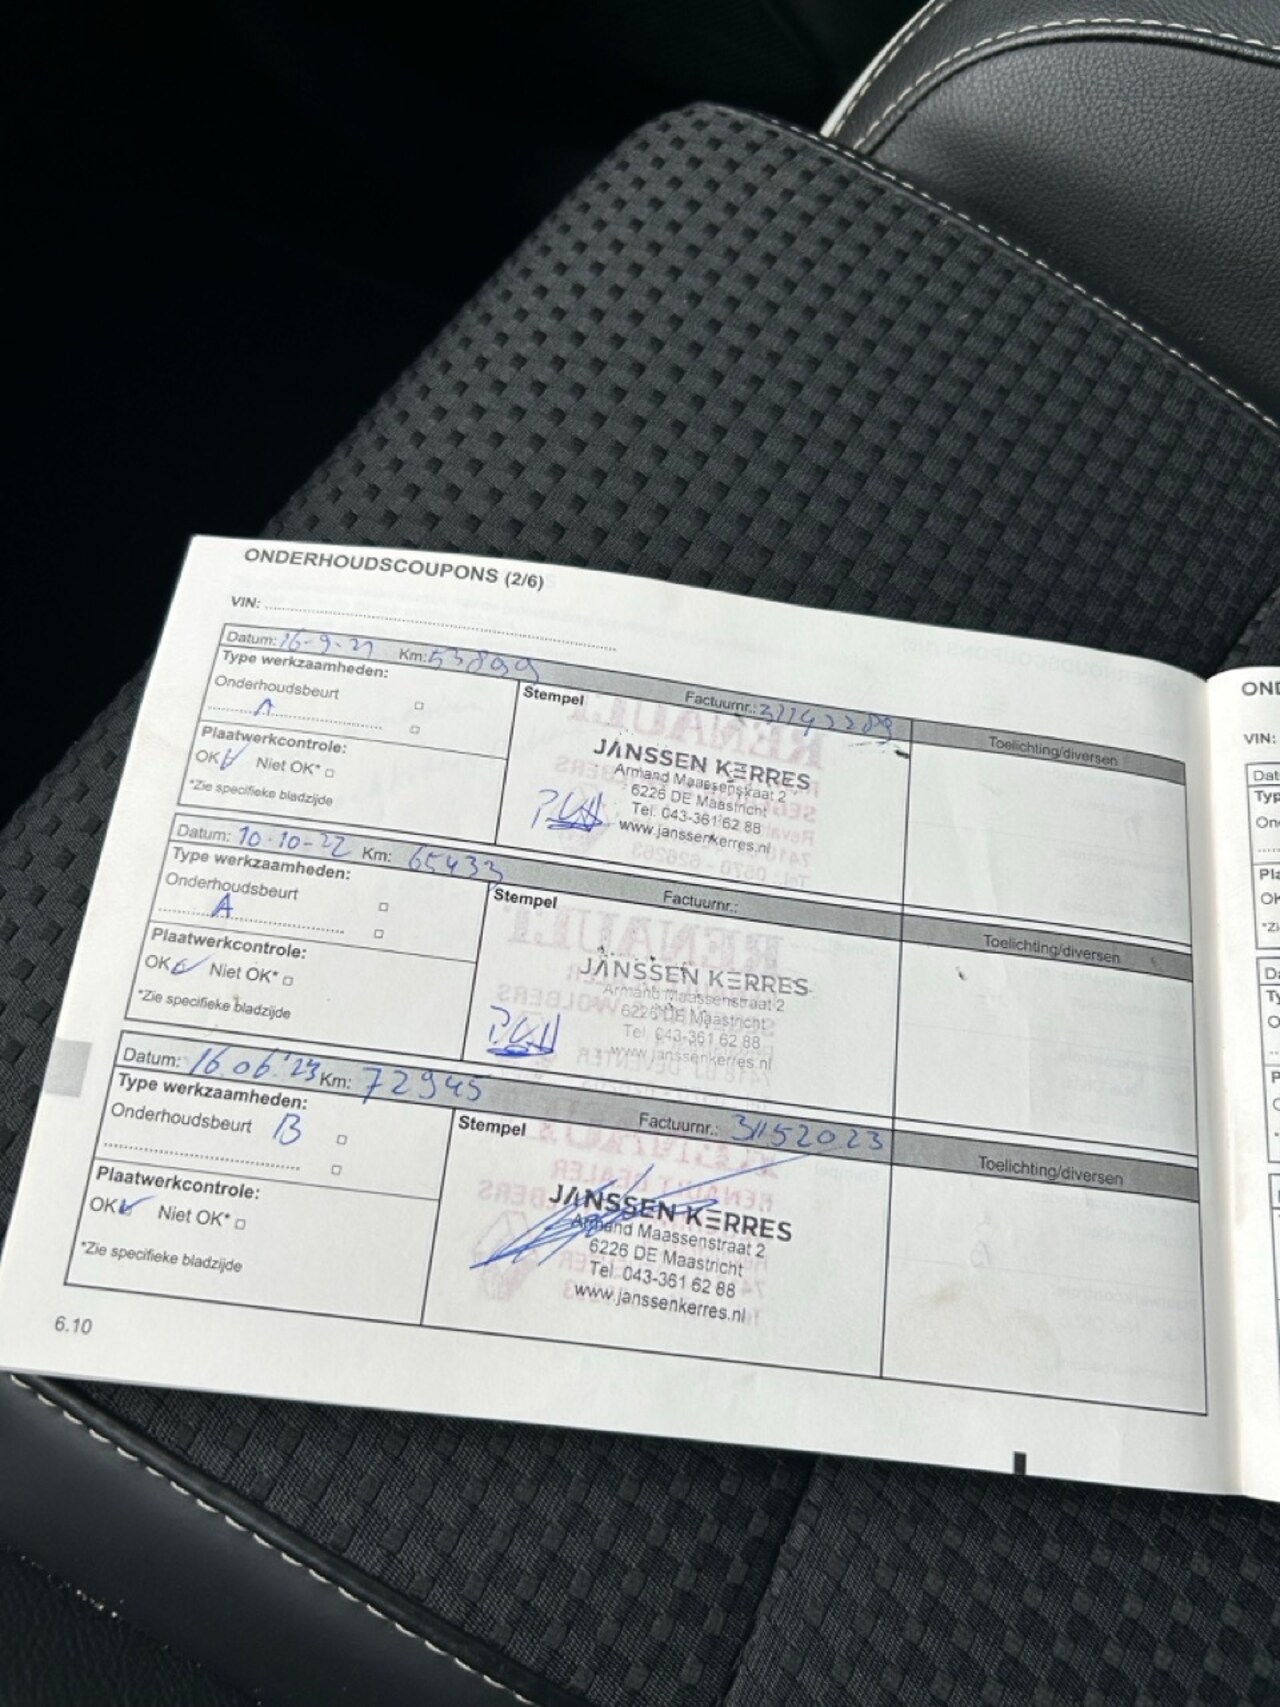 ONDERHOUDSCOUPONS (2/6)
VIN:
Datum: 16-9-21 Km: 53899 Factuurnr.: 31142289
Type werkzaamheden:
Onderhoudsbeurt
A
Plaatwerkcontrole:
OK Niet OK*
*Zie specifieke bladzijde
Stempel
JANSSEN KERRES
Armand Maassenstraat 2
6226 DE Maastricht
Tel. 043-361 62 88
www.janssenkerres.nl
Toelichting/diversen
Datum: 10-10-22 Km: 65433 Factuurnr.:
Type werkzaamheden:
Onderhoudsbeurt
A
Plaatwerkcontrole:
OK Niet OK*
*Zie specifieke bladzijde
Stempel
JANSSEN KERRES
Armand Maassenstraat 2
6226 DE Maastricht
Tel. 043-361 62 88
www.janssenkerres.nl
Toelichting/diversen
Datum: 16.06.'23 Km: 72945 Factuurnr.: 31152023
Type werkzaamheden:
Onderhoudsbeurt B
Plaatwerkcontrole:
OK Niet OK*
*Zie specifieke bladzijde
Stempel
JANSSEN KERRES
Armand Maassenstraat 2
6226 DE Maastricht
Tel. 043-361 62 88
www.janssenkerres.nl
Toelichting/diversen
6.10
VIN: